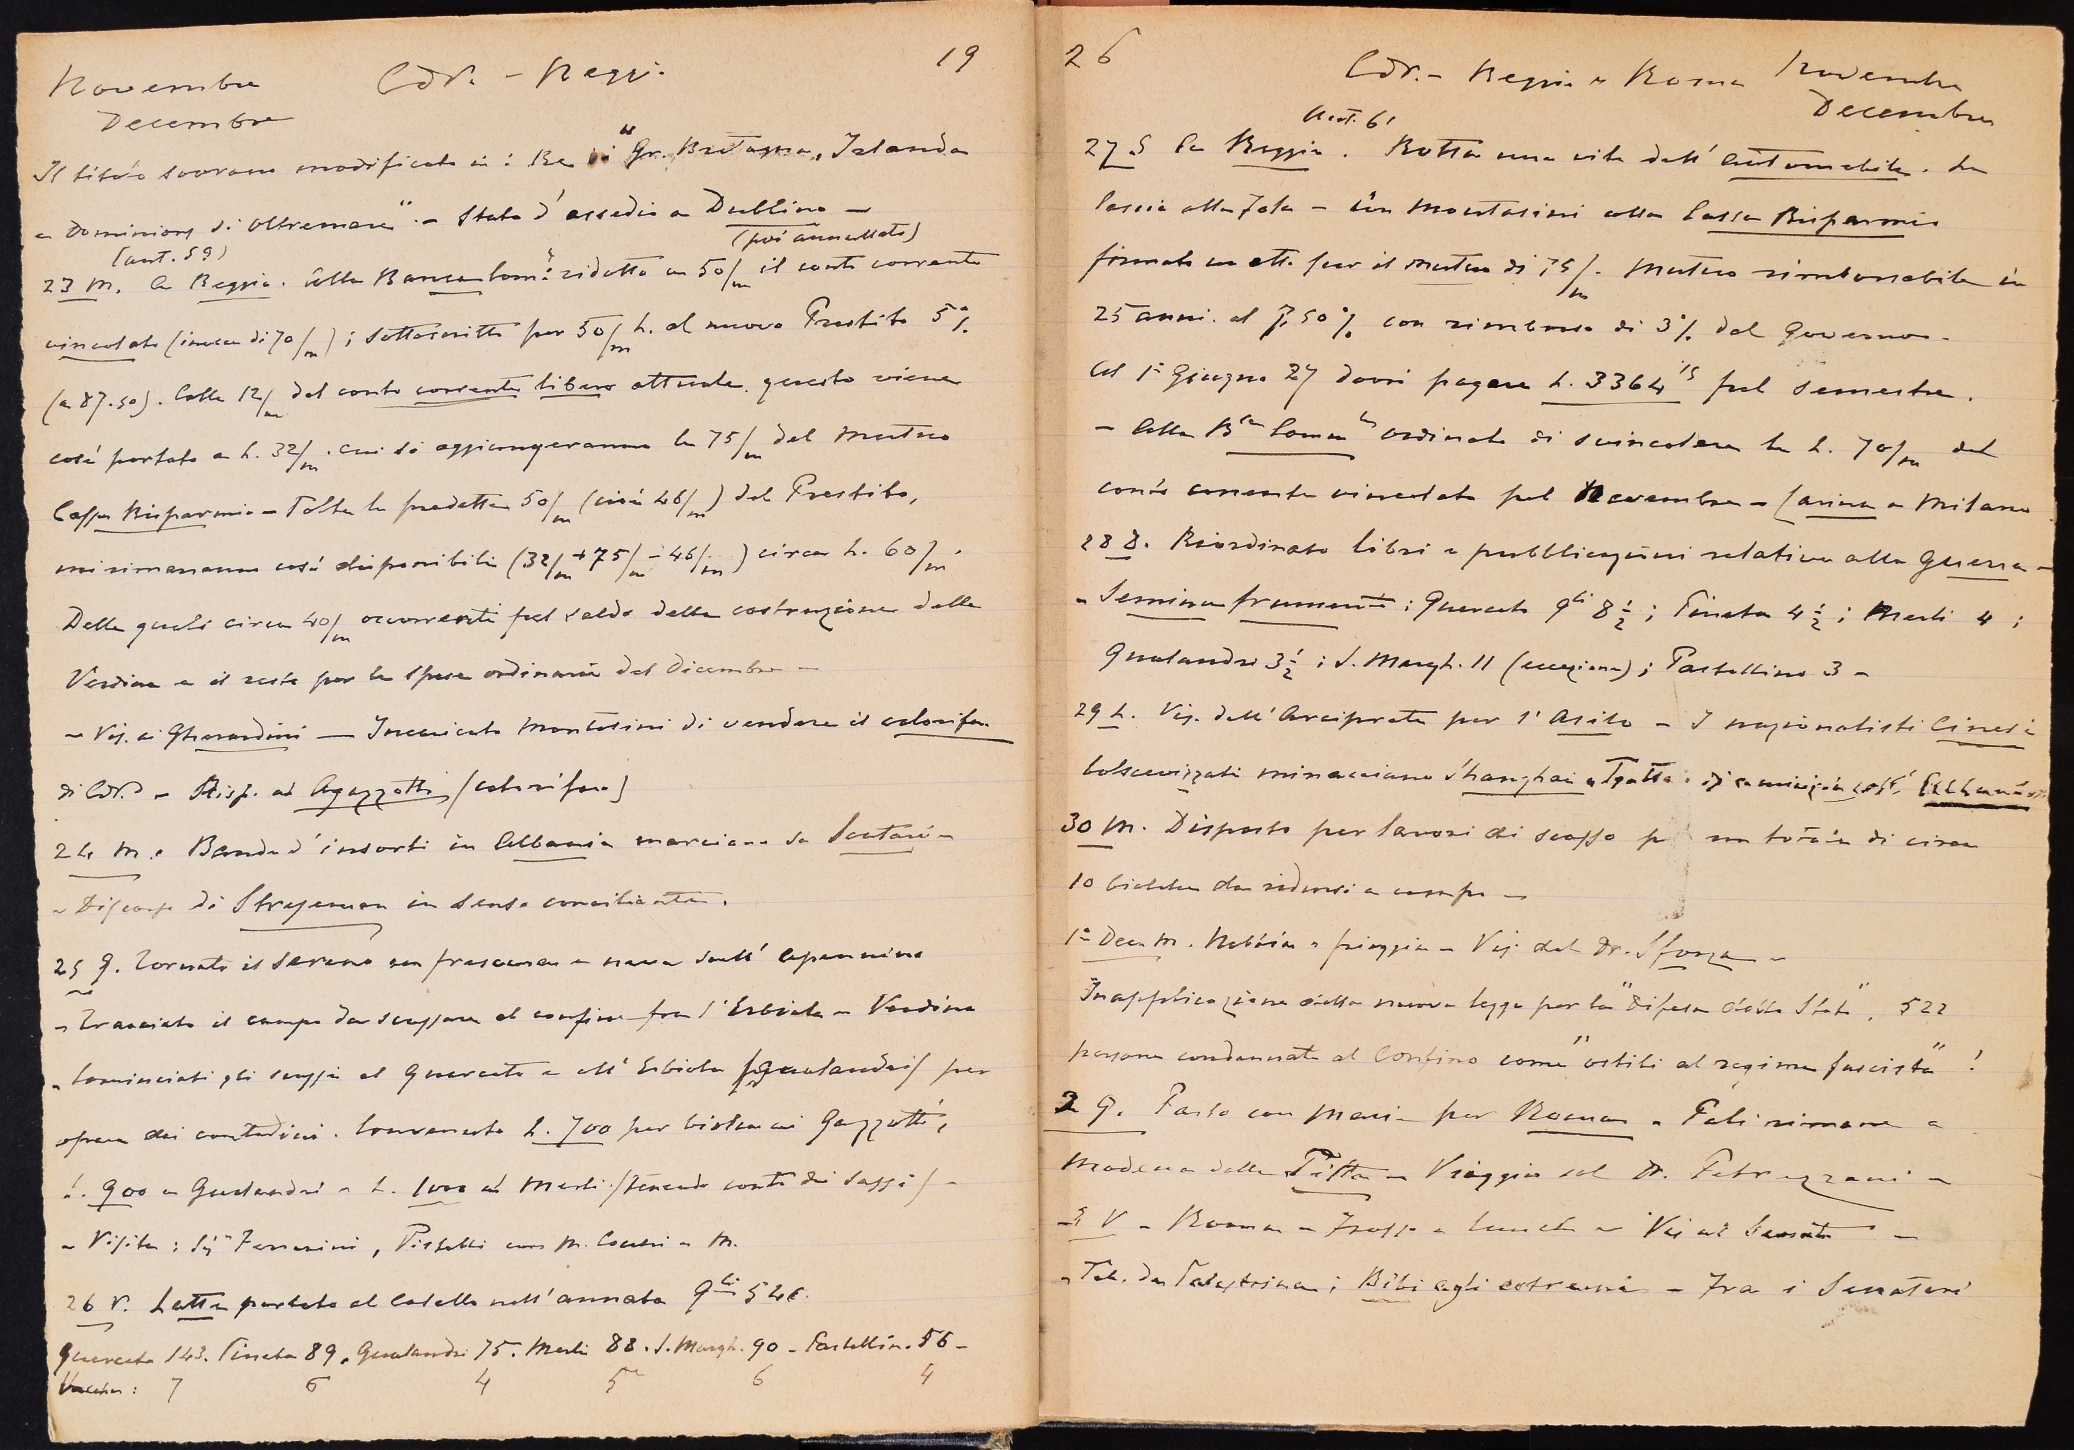 Novembre
Decembre
CdR. - Reggi.
19
Il titolo sovrano modificato in: Re di "Gr. Bretagna, Irlanda
e Dominions di Oltremare" - Stato d'assedio a Dublino -
(poi annullato)
(aut. 59)
23 M. A Reggio. Alla Banca Com. ridotto a 50/m il conto corrente
vincolato (invece di 70/m); sottoscritto per 50/m L. al nuovo Prestito 5%
(a 87.50). Colle 12/m del conto corrente libero attuale questo viene
così portato a L. 32/m. cui si aggiungeranno le 75/m del mutuo
Cassa Risparmio - Tolte le predette 50/m (cioè 46/m) del Prestito,
mi rimanranno così disponibili (32/m + 75/m - 46/m) circa L. 60/m.
Delle quali circa 40/m occorrenti pel saldo della costruzione della
Verdina e il resto per le spese ordinarie del Dicembre -
- Vis. ai Gherardini - Incaricato Montasini di vendere il calorifero
di CdR. - Risp. ad Agazzotti (calorifero)
24 M. Bande d'insorti in Albania marciano su Scutari -
- Discorso di Stresemann in senso conciliante.
25 G. Tornato il sereno con frescura e neve sull'Apennino
- Tracciato il campo da scassare al confine fra l'Erbiola e Verdina
- Cominciati gli scassi al Querceto e all'Erbiola (Gualandri) per
opera dei contadini. Convenuto L. 700 per biolca ai Gazzotti,
L. 900 a Gualandri e L. 1000 ai Merli (tenendo conto dei sassi) -
- Visita: Ferrarini, Pistelli con M. e M.
26 V. Latte portato al Casello nell'annata Qli 546.
Querceto 143. Pineta 89. Gualandri 75. Merli 88. S. Margh. 90 - Pastellin. 56 -
Vacche: 7 6 4 5 6 4
26
CdR. - Reggio e Roma
Novembre
Decembre
aut. 61
27 S A Reggio. Rotta una vite dell'automobile. La
lascio alla Zola - Con Montasini alla Cassa Risparmio
firmato un atto per il mutuo di 75/m. Mutuo rimborsabile in
25 anni al 7,50% con rimborso di 3% dal Governo -
Al 1° Giugno 27 dovrò pagare L. 3364,15 pel semestre.
- Alla Bca Comm. ordinato di svincolare le L. 70/m del
conto corrente vincolato pel Novembre - (arriva a Milano
28 D. Riordinato libri e pubblicazioni relative alla Guerra -
- Semina frumento: Querceto Qli 8½; Pineta 4½; Merli 4;
Gualandri 3½; S. Margh. 11 (eccezione); Pastellino 3 -
29 L. Vis. dell'Arciprete per l'Asilo - I nazionalisti Cinesi
bolscevizzati minacciano Shanghai -
30 M. Disposto per lavori di scasso per un totale di circa
10 biolche da ridursi a campo -
1° Dec. M. Nebbia e pioggia - Vis. del Dr. Sforza -
In applicazione della nuova legge per la "Difesa dello Stato", 522
persone condannate al Confino come "ostili al regime fascista"!
2 G. Parto con Maria per Roma - Poli rimane a
Modena dalla Titta - Viaggio col Dr. Petrazzani -
3 V - Roma - Lunch - Vis. al Senato -
- Tel. da Palestrina; Bibi agli estremi - Fra i Senatori